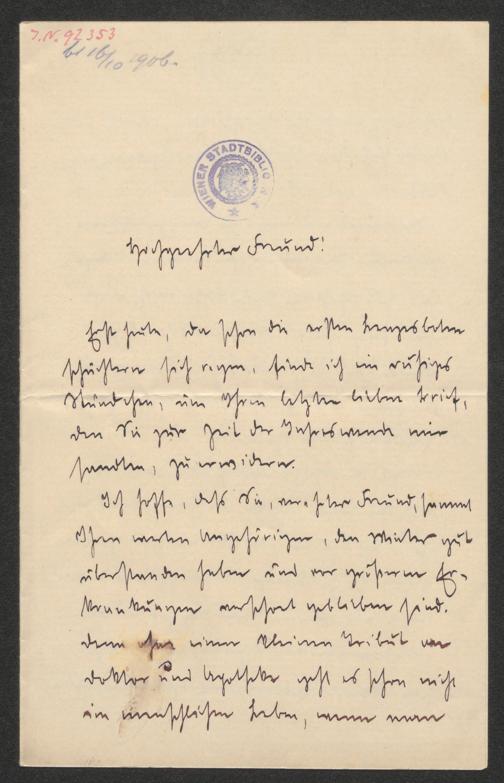 J.N. 92353
16/10 1906.
WIENER STADTBIBLIOTHEK
Hochgeehrter Freund!
Erst heute, da schon die ersten Lenzesboten
schüchtern sich regen, finde ich ein ruhiges
Stündchen, um Ihren letzten lieben Brief,
den Sie zur Zeit der Jahreswende mir
sandten, zu erwidern.
Ich hoffe, daß Sie, verehrter Freund, sammt
Ihren werten Angehörigen, den Winter gut
überstanden haben und vor größeren Er-
krankungen verschont geblieben sind.
Denn ohne einen kleinen Tribut an
Doktor und Apotheke geht es schon nicht
im menschlichen Leben, wenn man